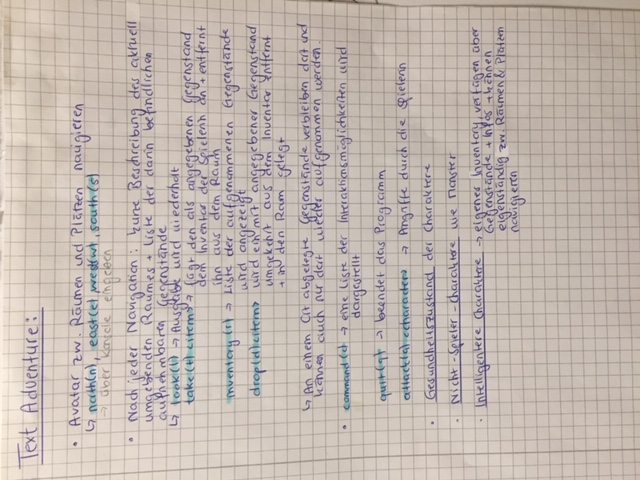 Text Adventure:
• Avatar zw. Räumen und Plätzen navigieren
↳ north(n), east(e), west(w), south(s)
→ über Konsole eingeben
• Nach jeder Navigation: kurze Beschreibung des aktuell
umgebenden Raumes + Liste der darin befindlichen
aufnehmbaren Gegenstände
↳ look(l) → Ausgabe wird wiederholt
take(t) <item> → fügt den als angegebenen Gegenstand
dem Inventar der Spielerin an + entfernt
ihn aus dem Raum
inventory (i) → Liste der aufgenommenen Gegenstände
wird angezeigt
drop(d) <item> wird ein mit angegebener Gegenstand
umgekehrt aus dem Inventar entfernt
+ in den Raum gelegt
↳ An einem Ort abgelegte Gegenstände verbleiben dort und
können auch nur dort wieder aufgenommen werden.
• command(c) → eine Liste der Interaktionsmöglichkeiten wird
dargestellt
quit(q) → beendet das Programm
attack(a) <character> → Angriffe durch die Spielerin
• Gesundheitszustand der Charaktere
• Nicht-Spieler-Charaktere wie Monster
• Intelligentere Charaktere → eigenes Inventory, verfügen über
Gegenstände + Infos + können
eigenständig zw. Räumen & Plätzen
navigieren